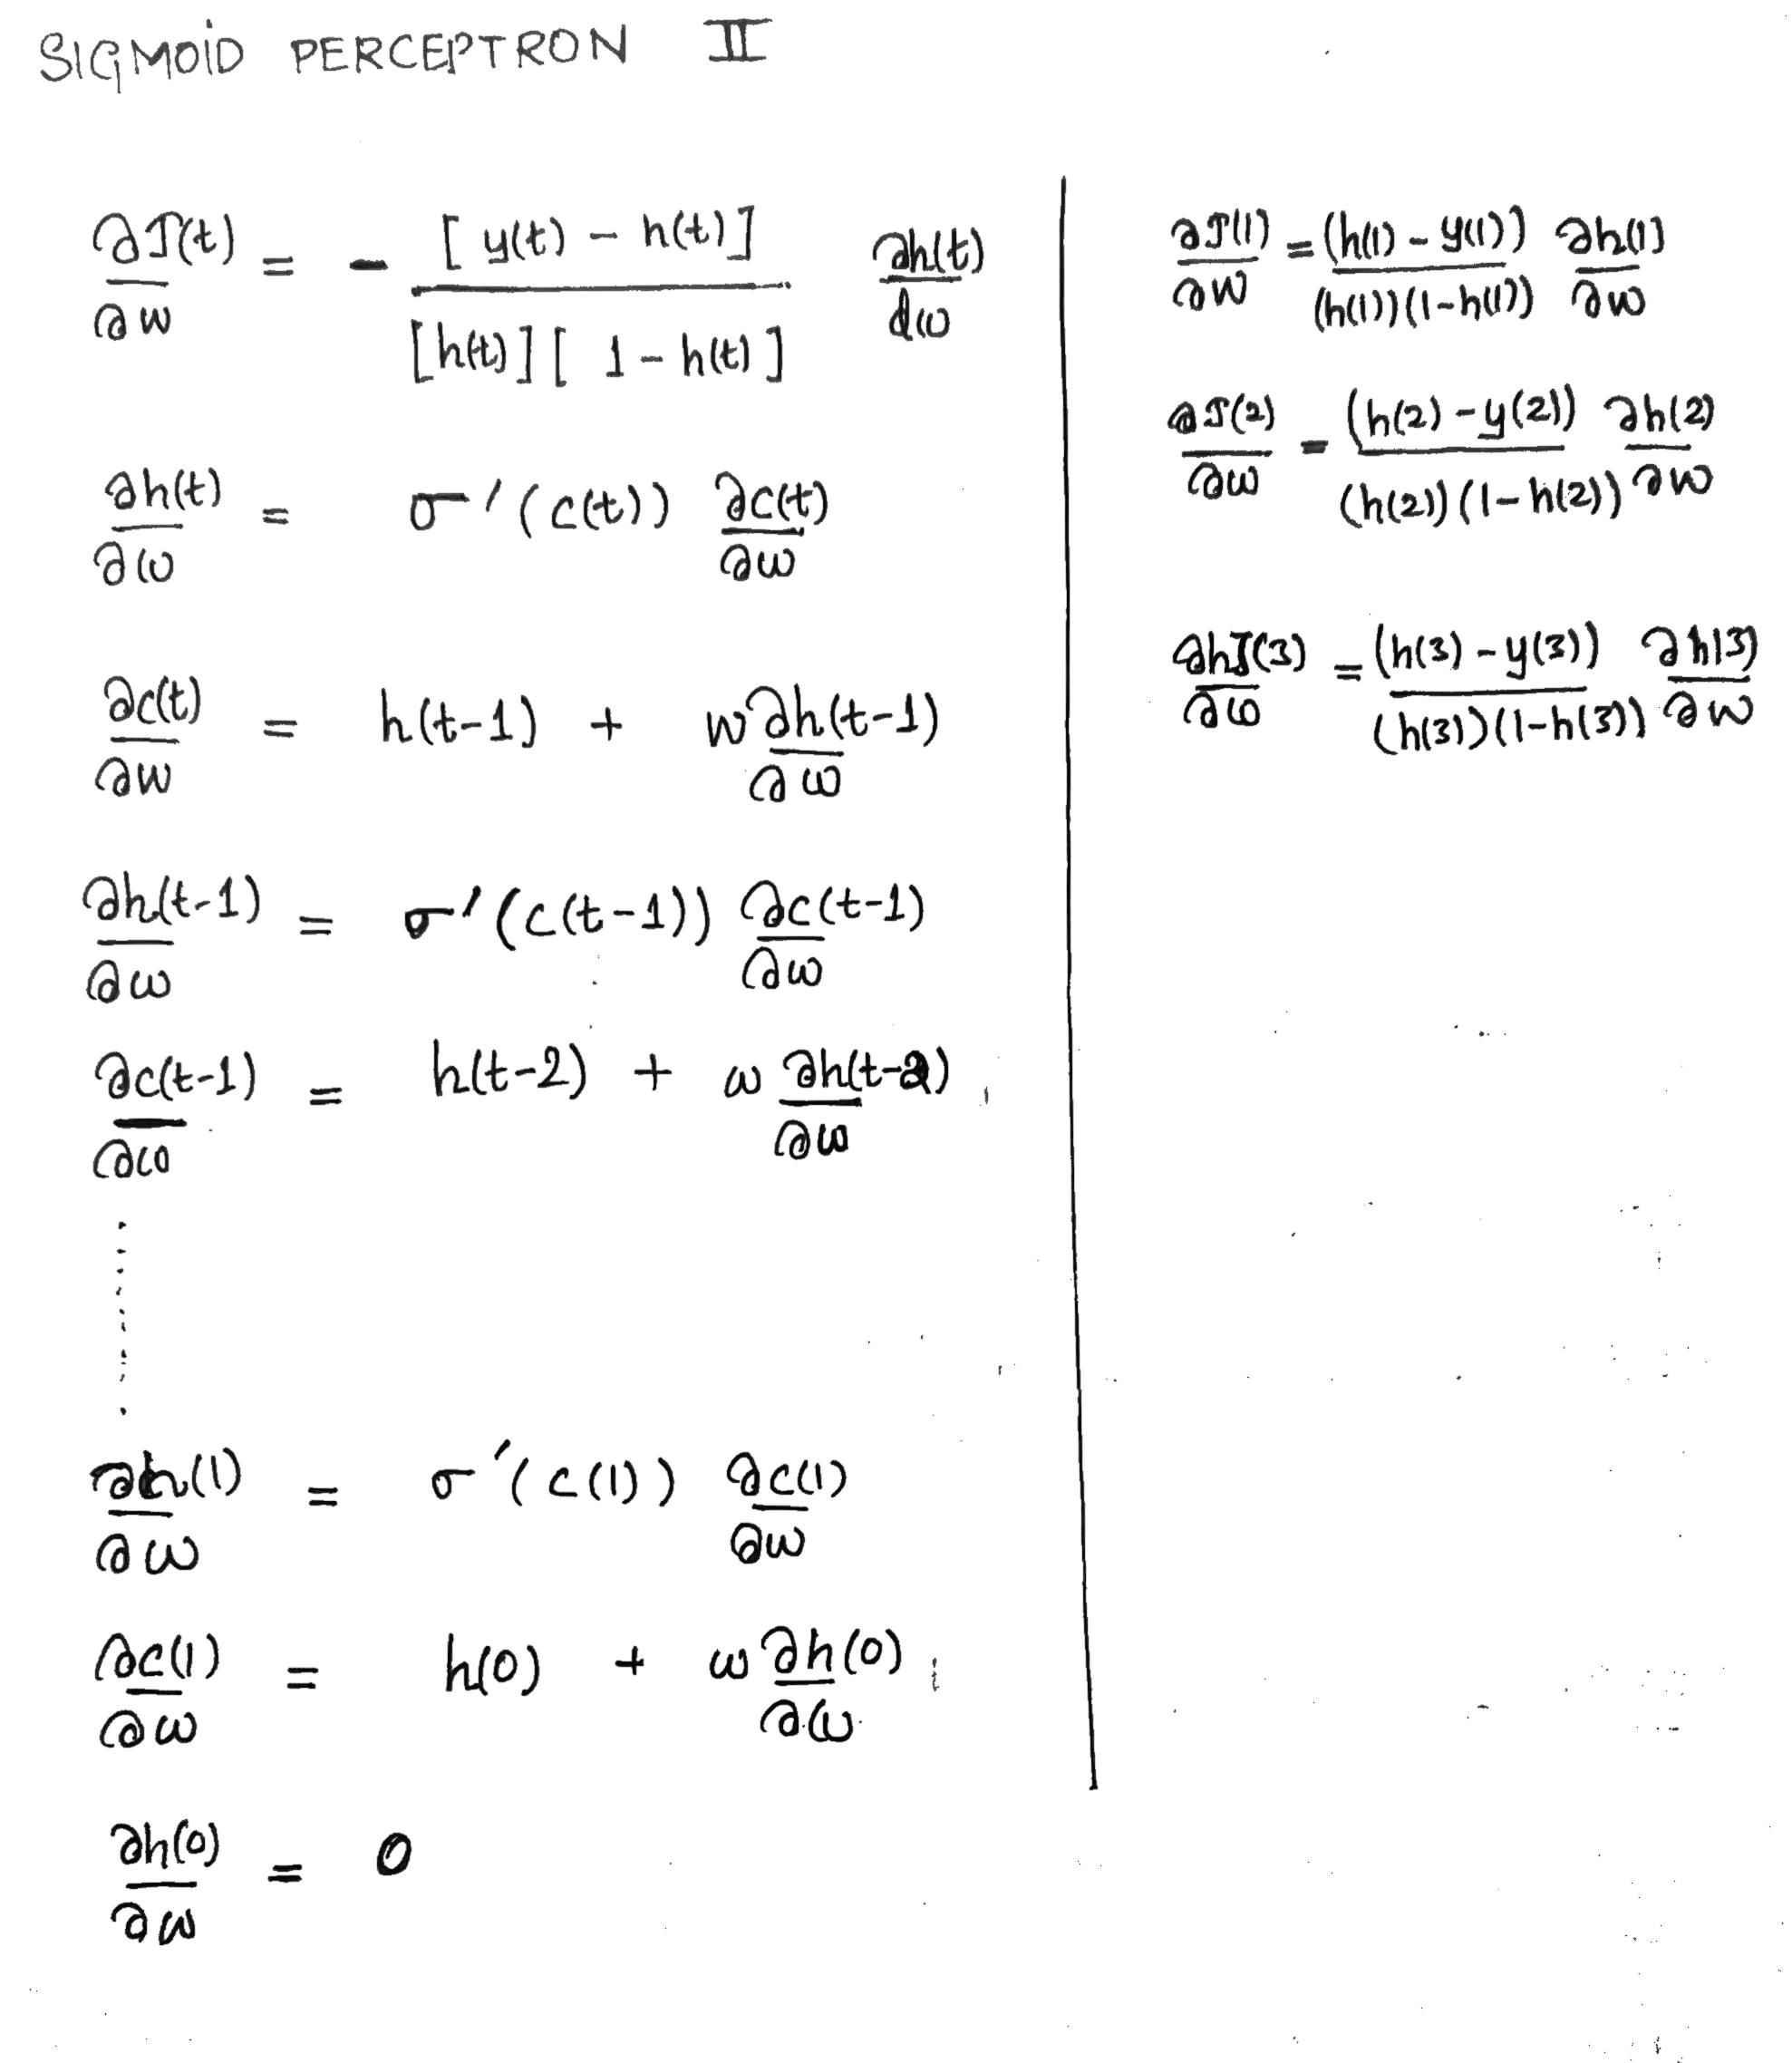 SIGMOID PERCEPTRON II
∂J(t)/∂w = - [y(t) - h(t)] / [h(t)][1 - h(t)] ∂h(t)/dw
∂h(t)/∂w = σ'(c(t)) ∂c(t)/∂w
∂c(t)/∂w = h(t-1) + w ∂h(t-1)/∂w
∂h(t-1)/∂w = σ'(c(t-1)) ∂c(t-1)/∂w
∂c(t-1)/∂w = h(t-2) + w ∂h(t-2)/∂w
∂h(1)/∂w = σ'(c(1)) ∂c(1)/∂w
∂c(1)/∂w = h(0) + w ∂h(0)/∂w
∂h(0)/∂w = 0
∂J(1)/∂w = (h(1) - y(1)) / (h(1))(1-h(1)) ∂h(1)/∂w
∂J(2)/∂w = (h(2) - y(2)) / (h(2))(1-h(2)) ∂h(2)/∂w
∂hJ(3)/∂w = (h(3) - y(3)) / (h(3))(1-h(3)) ∂h(3)/∂w